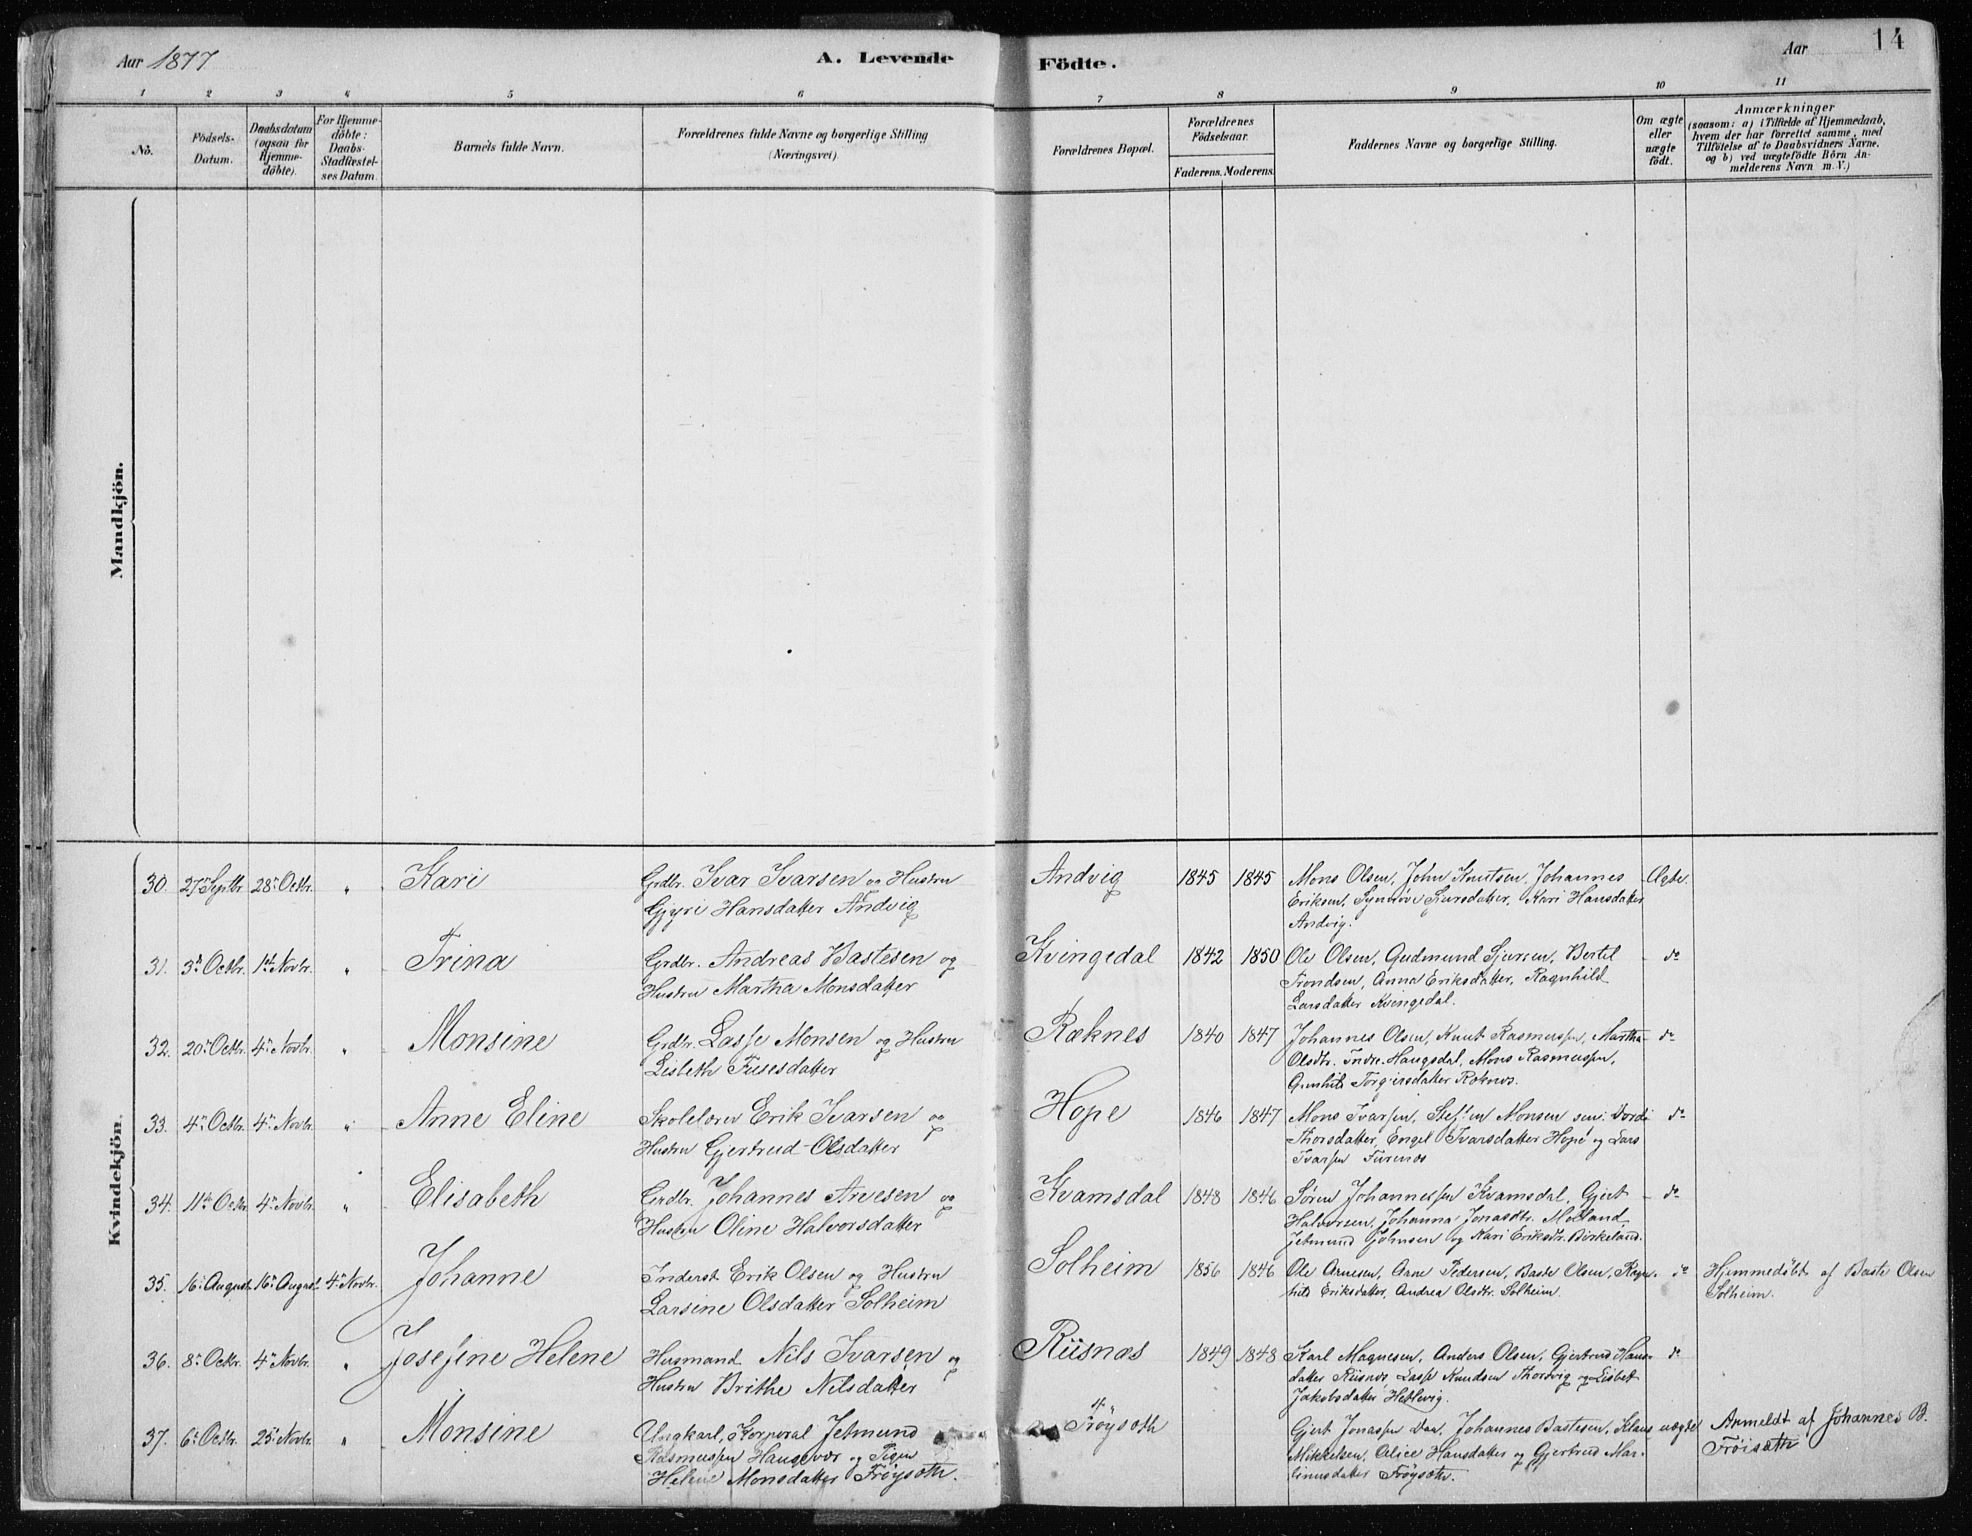 Aar 1877
A. Levende
Födte.
Aar
14
1 2 3 4 5 6 7 8 9 10 11
No.
Födsels-Datum.
Daabsdatum (ogsaa for Hjemme-döbte).
For Hjemme-döbte: Daabs-Stadfæstel-ses Datum.
Barnets fulde Navn.
Forældrenes fulde Navne og borgerlige Stilling (Næringsvei).
Forældrenes Bopæl.
Forældrenes Födselsaar.
Faderens. Moderens.
Faddernes Navne og borgerlige Stilling.
Om ægte eller uægte födt.
Anmærkninger
(saasom: a) i Tilfælde af Hjemmedaab,
hvem der har forrettet samme, med
Tilföielse af to Daabsvidners Navne,
og b) ved uægtefödte Börn An-
melderens Navn m.V.)
Mandkjön.
Kvindekjön.
30. 27de Septbr. 28de Octbr. " Kari
Grdbr. Ivar Ivarsen og Hustru
Gjyri Hansdatter Andvig
Andvig 1845 1845
Mons Olsen, John Knutsen, Johannes
Eriksen, Synnöve Sjursdatter, Kari Hansdatter
Andvig.
Ægte.
31. 3die Octbr. 1ste Novbr. " Trina
Grdbr. Andreas Bastesen og
Hustru Martha Monsdatter
Kvingedal 1842 1850
Ole Olsen, Gudmund Sjursen, Bertil
Trondsen, Anna Eriksdatter, Ragnhild
Larsdatter Kvingedal.
do
32. 20de Octbr. 4de Novbr. " Monsine
Grdbr. Lasse Monsen og Hustru
Lisbeth Fusesdatter
Ræknes 1840 1847
Johannes Olsen, Knut Rasmussen, Martha
Olsdtr. Indre Haugsdal, Mons Rasmussen,
Gunhild Torgersdatter Roknes.
do
33. 4de Octbr. 4de Novbr. " Anne Eline
Skolelærer Erik Ivarsen og
Hustru Gjertrud Olsdatter
Hope 1846 1847
Mons Ivarsen, Steffen Monsen sen: Dordi
Thorsdatter, Engel Ivarsdatter Hope og Lars
Ivarsen Furenes
do
34. 11te Octbr. 4de Novbr. " Elisabeth
Grdbr. Johannes Arvesen og
Hustru Oline Halvorsdatter
Kvamsdal 1848 1846
Sören Johannessen Kvamsdal, Gjert
Halvorsen, Johanna Jonasdtr. Molland,
Jetmund Johnsen og Kari Eriksdtr. Birkeland.
do
35. 16de August 16de August 4de Novbr. Johanne
Inderst Erik Olsen og Hustru
Larsine Olsdatter Solheim
Solheim 1856 1846
Ole Arnesen, Arne Pedersen, Baste Olsen, Ragn-
hild Eriksdatter, Andrea Olsdtr. Solheim.
do
Hjemmedöbt af Baste Olsen
Solheim.
36. 8de Octbr. 4de Novbr. " Josefine Helene
Husmand Nils Ivarsen og
Hustru Brithe Nilsdatter
Riisnæs 1849 1848
Karl Magnesen, Anders Olsen, Gjertrud Hans-
datter Riisnes, Lasse Knudsen Thorsvig og Lisbet
Jakobsdatter Hetlevig.
do
37. 6te Octbr. 25de Novbr. " Monsine
Ungkarl, Korporal Jetmund
Rasmussen Haugsvær og Pigen
Helene Monsdatter Fröysoth.
Fröysoth
Gjert Jonassen Daa, Johannes Bastesen, Klaus
Mikkelsen, Alice Hansdatter og Gjertrud Mar-
tinusdatter Fröysoth.
uægte
Anmeldt af Johannes B.
Fröisoth